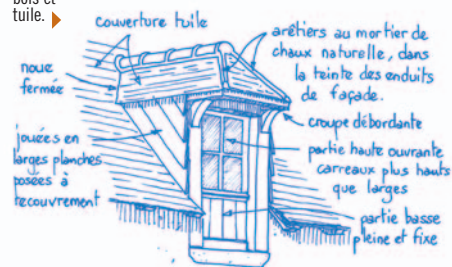 bois et
tuile.
couverture tuile
noue
fermée
jouées en
larges planches
posées à
recouvrement
arêtiers au mortier de
chaux naturelle, dans
la teinte des enduits
de façade.
croupe débordante
partie haute ouvrante
carreaux plus hauts
que larges
partie basse
pleine et fixe